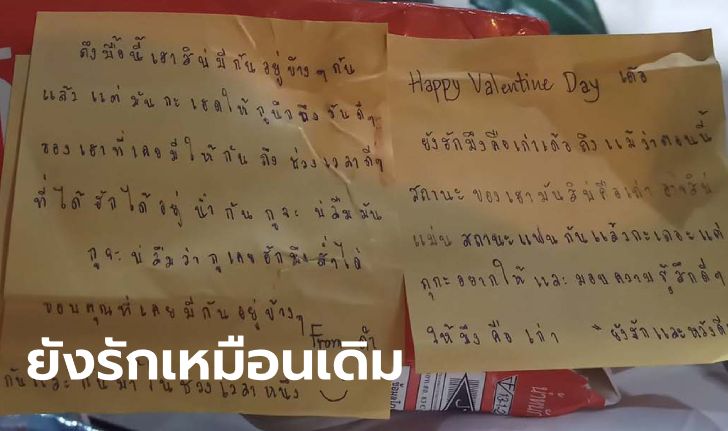 Happy Valentine Day เด้อ
ยังฮักมึงคือเก่าเด้อ ถึงแม้ว่าตอนนี้
สถานะของเฮามันสิบ่คือเก่า อาจสิบ่
แม่นสถานะแฟนกันแล้วกะเถอะแต่
กูกะอยากให้และมอบความรู้สึกดีๆ
ให้มึงคือเก่า ยังฮักและหวังดี
ถึงมื้อนี้เฮาสิบ่มีกันอยู่ข้างๆกัน
แล้ว แต่มันกะเฮ็ดให้กูนึกถึงวันดีๆ
ของเฮาที่เคยมีให้กัน ถึงช่วงเวลาดีๆ
ที่ได้ฮักได้อยู่นำกัน กูจะบ่ลืมมัน
กูจะบ่ลืมว่ากูเคยฮักมึงส่ำใด๋
ขอบคุณที่เคยมีกันอยู่ข้างๆ
From
กันและกันมาในช่วงเวลาหนึ่ง
ยังรักเหมือนเดิม